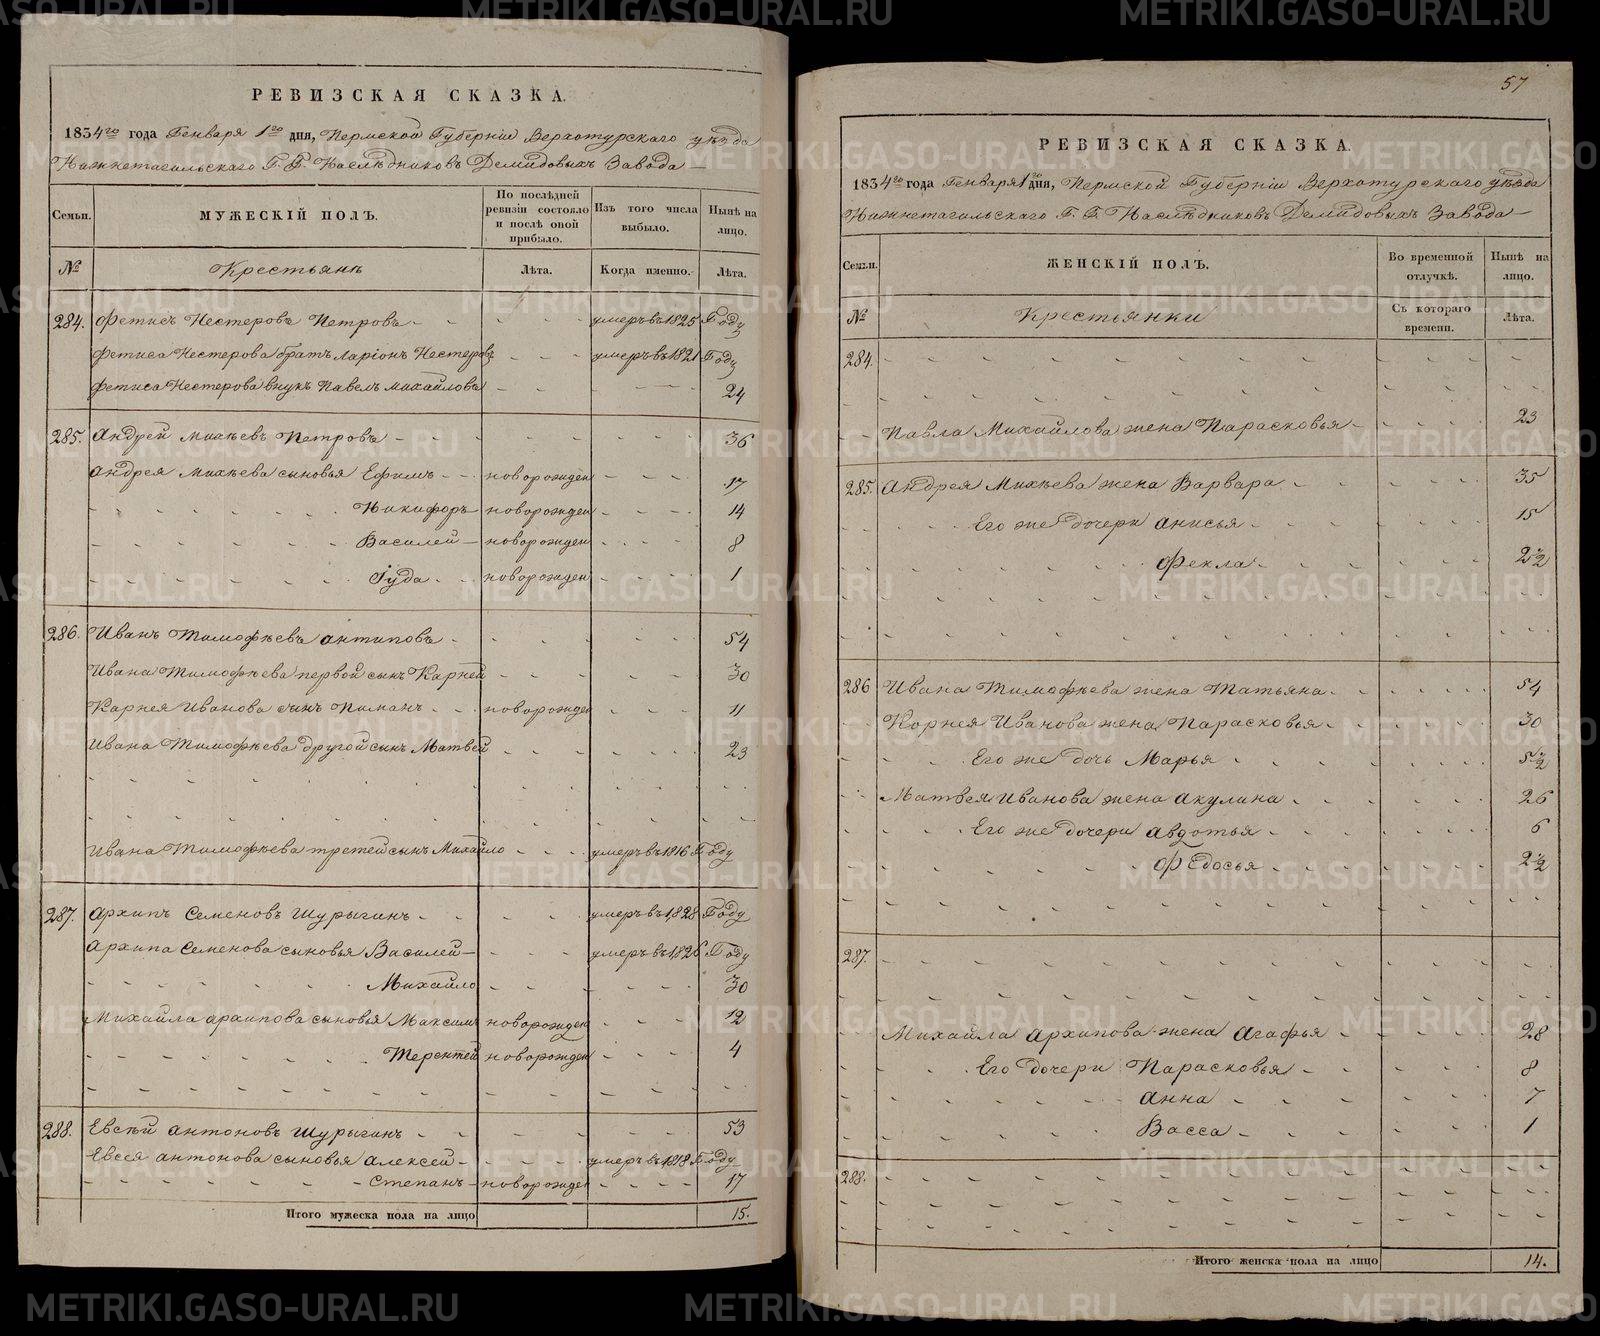 РЕВИЗСКАЯ СКАЗКА.
1834го года Генваря 1го дня, Пермской Губернiи Верхотурскаго уѣзда
Нижнетагильскаго Г. Г. Наслѣдниковъ Демидовыхъ Завода
Семьи.
МУЖЕСКIЙ ПОЛЪ.
По послѣдней ревизiи состояло и послѣ оной прибыло.
Изъ того числа выбыло.
Нынѣ на лицо.
№
Крестьянъ
Лѣта.
Когда именно.
Лѣта.
284. Фетисъ Нестеровъ Петровъ умеръ въ 1825 Году
Фетиса Нестерова братъ Ларiонъ Нестеровъ умеръ въ 1821 Году
Фетиса Нестерова внукъ Павелъ Михайловъ 24
285. Андрей Михѣевъ Петровъ 36
Андрея Михѣева сыновья Ефимъ новорожден 17
Никифоръ новорожден 14
Василей новорожден 8
Iуда новорожден 1
286. Иванъ Тимофѣевъ Антиповъ 54
Ивана Тимофѣева первой сынъ Карней 30
Карнея Иванова сынъ Пиманъ новорожден 11
Ивана Тимофѣева другой сынъ Матвей 23
Ивана Тимофѣева третей сынъ Михайло умеръ въ 1816 Году
287. Архипъ Семеновъ Шурыгинъ умеръ въ 1828 Году
Архипа Семенова сыновья Василей умеръ въ 1826 Году
Михайло 30
Михайла Архипова сыновья Максимъ новорожден 12
Терентей новорожден 4
288. Евсѣй Антоновъ Шурыгинъ 53
Евсея Антонова сыновья Алексей умеръ въ 1818 Году
Степанъ новорожден 17
Итого мужеска пола на лицо 15.
57
РЕВИЗСКАЯ СКАЗКА.
1834го года Генваря 1го дня, Пермской Губернiи Верхотурскаго уѣзда
Нижнетагильскаго Г. Г. Наслѣдниковъ Демидовыхъ Завода
Семьи.
ЖЕНСКIЙ ПОЛЪ.
Во временной отлучкѣ.
Нынѣ на лицо.
№
Крестьянки
Съ котораго времени.
Лѣта.
284.
Павла Михайлова жена Парасковья 23
285. Андрея Михѣева жена Варвара 35
Его же дочери Анисья 15
Фекла 2 ½
286 Ивана Тимофѣева жена Татьяна 54
Корнея Иванова жена Парасковья 30
Его же дочь Марья 5 ½
Матвея Иванова жена Акулина 26
Его же дочери Авдотья 6
Федосья 2 ½
287.
Михайла Архипова жена Агафья 28
Его дочери Парасковья 8
Анна 7
Васса 1
288.
Итого женска пола на лицо 14.
METRIKI.GASO-URAL.RU